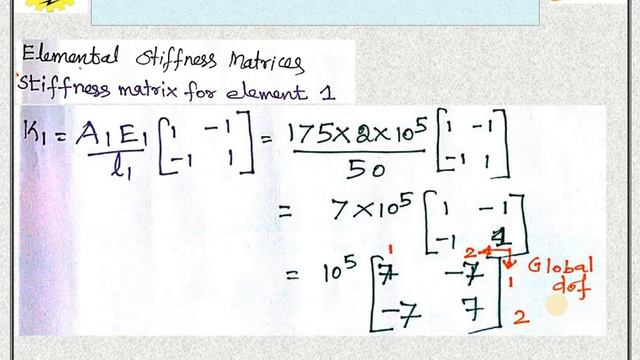 Elemental Stiffness Matrices
Stiffness matrix for element 1
K₁ = A₁E₁/l₁ [1 -1; -1 1] = 175×2×10⁵/50 [1 -1; -1 1]
= 7×10⁵ [1 -1; -1 1]
1 2
= 10⁵ [7 -7; -7 7] 1 2 Global dof